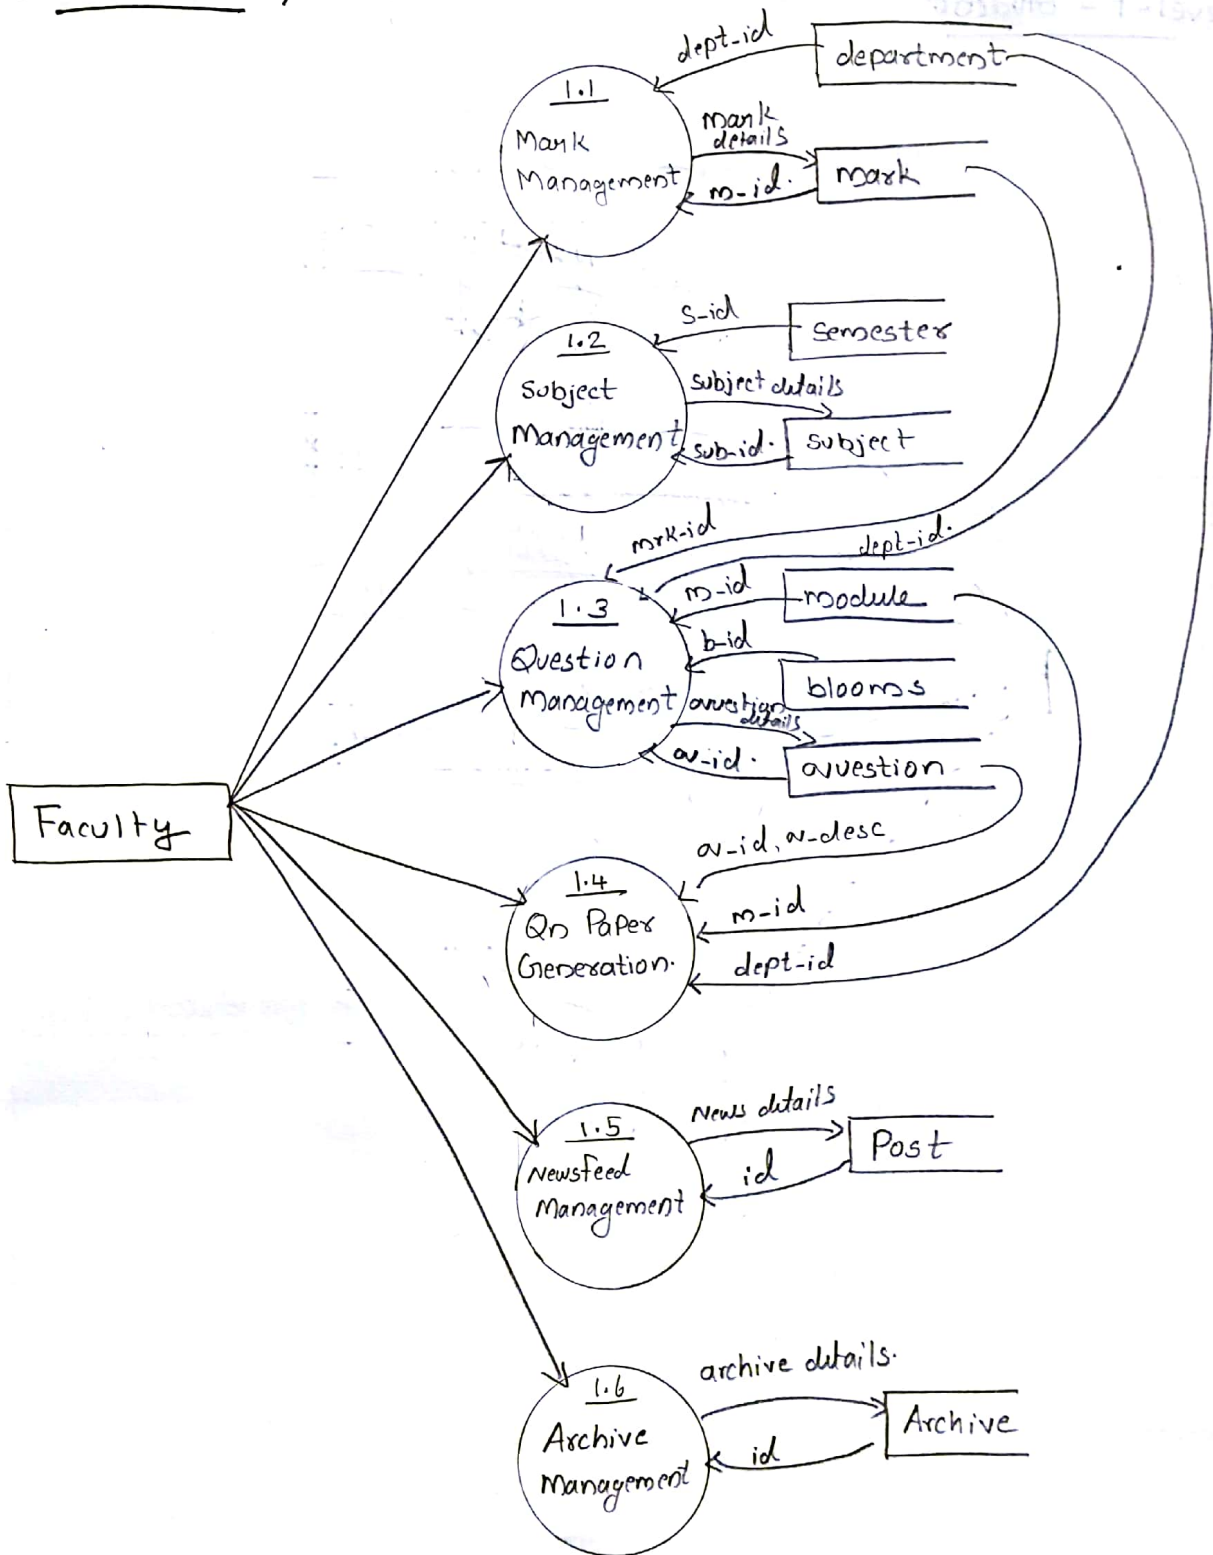 dept-id
department
1.1
Mark
Management
mark
details
m-id.
mark
s-id
semester
1.2
Subject
Management
subject details
sub-id.
subject
mrk-id
dept-id.
1.3
Question
Management
m-id
module
b-id
blooms
question
details
qu-id.
question
Faculty
1.4
Qn Paper
Generation.
qu-id, qu-desc
m-id
dept-id
1.5
Newsfeed
Management
News details
id
Post
1.6
Archive
Management
archive details.
id
Archive